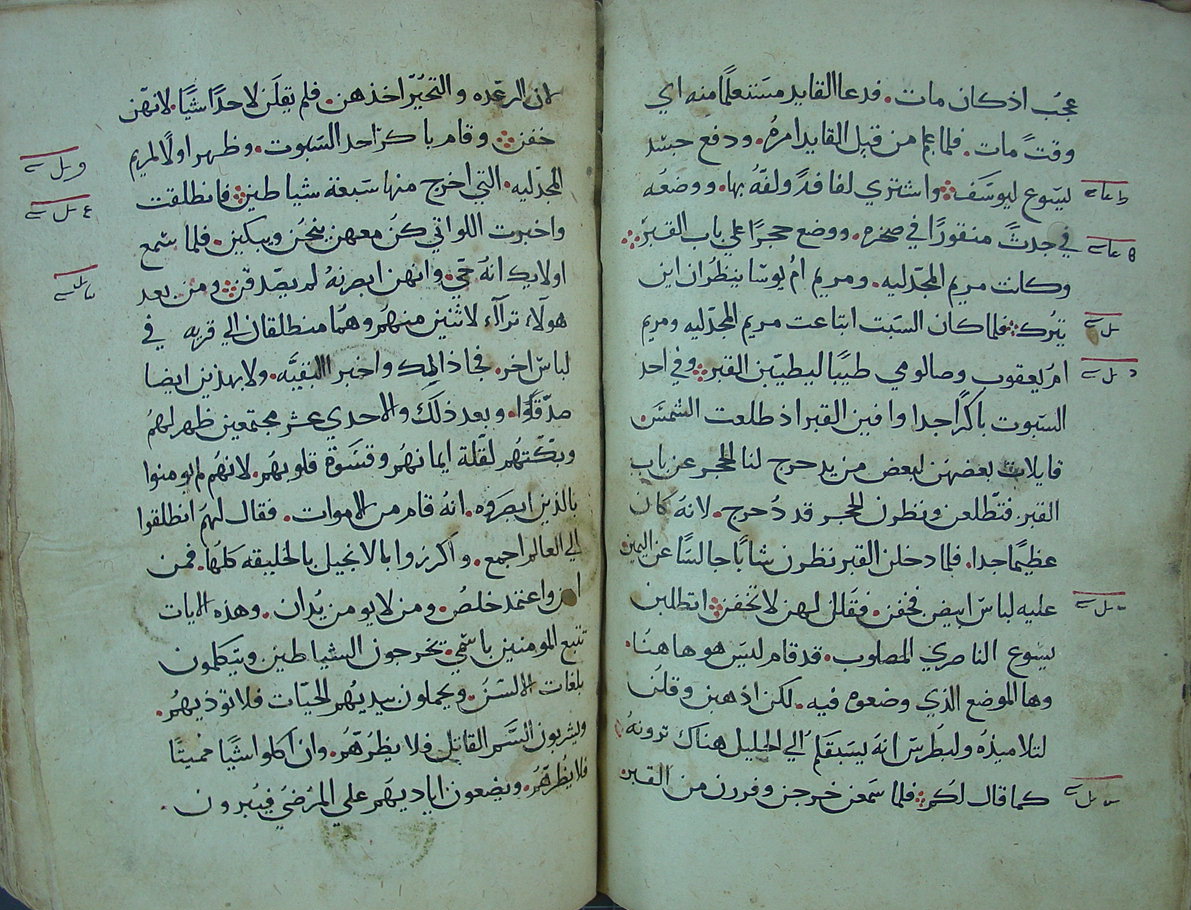 عجب اذ كان مات. فدعا القايد مستعلمًا منه اي
وقتً مات. فلما علم من قبل القايد امرهُ. ودفع جسد
يسوع ليوسَف واشتري لفافةً ولفهُ بها. ووضعُه
في جدثً منقورًا في صخره. ووضع حجرًا علي باب القبر
وكانت مريم المجدليه. ومريم امُ يوسا ينظرُان اين
يترك فلما كان السَبت ابتاعت مريم المجدليه ومريم
امُ يعقوب وصالومي طيبًا ليطيبن القبر وفي احد
السَبوت باكرًا جدا وافين القبر اذ طلعت الشمسَ
قايلات بعضهَن لبعض من يدحرج لنا الحجر عن باب
القبر. فتطلعن ونظرن الحجر قد دُحرج. لانهُ كان
عظيمًا جدا. فلما دخلن القبر نظرن شابًا جالسَا عن اليمين
عليه لباسَ ابيض فخفن. فقال لهن لا تخفن اتطلبن
يسوع الناصري المصلوب. قد قام ليسَ هو هاهنا.
وها الموضع الذي وضعوه فيه. لكن اذهبن وقلن
لتلاميذهُ ولبطُرسَ انهَ يسَبقكمُ الي الجليل هناك ترونهُ
كما قال لكم فلما سَمعن خرجن وفررن من القبر
لان الرعَده والتحيُر اخذهن. فلم يقلَن لاحدًا شيًا لانهَن
خفن وقام باكرًا احد السَبوت. وظهر اولًا لمريم
المجدليه. التي اخرج منها سَبعة شياطين فانطلقت
واخبرت اللواتي كنُ معهن ينحُن ويبكين. فلما سَمع
اولايك انهَ حَي. وانهن ابصرنهُ لم يصَدقن ومن بعد
هولاء تراآء لاثنين منهمُ وهمُا منطلقان الي قريه في
لباسَ اخر. واخبر البقيَه. ولا بهذين ايضا
صدَقوا. وبعد ذلك والاحدي عشر مجتمعين ظهر لهمُ
وبكَتهُم لقلة ايمانهمُ وقسَوة قلوبهمُ. لانهمُ لم يومنوا
بالذين ابصَروه. انهُ قام من الاموات. فقال لهمُ انطلقوا
الي العالم اجمع. واكرزوا بالانجيل بالخليقه كلهَا. فمن
امن واعتمد خلصُ. ومن لا يومن يُدان. وهذه الايات
تتبع المومنين باسَمي. يخرجون الشياطين ويتكلمون
بلغات الالسَنُ. ويحملون بيديهمُ الحيَات فلا توذيهمُ.
ويشربون السَم القاتل فلا يظرُهمُ. وان اكلوا شيًا مميتًا
فلا يُظرهمُ. ويضعون اياديهمَ علي المرضَي فيبرون.